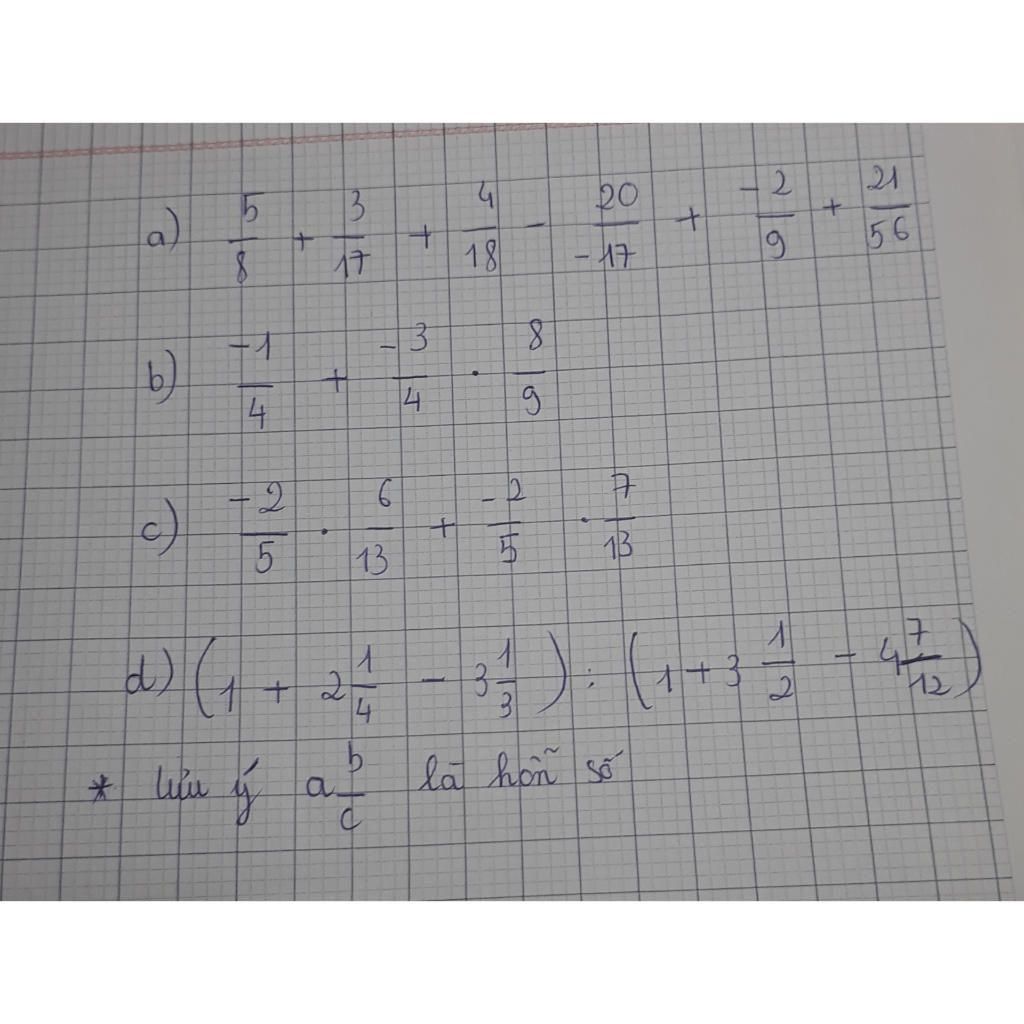 a) 5/8 + 3/17 + 4/18 - 20/-17 + -2/9 + 21/56
b) -1/4 + -3/4 . 8/9
c) -2/5 . 6/13 + -2/5 . 7/13
d) (1 + 2 1/4 - 3 1/3) : (1 + 3 1/2 - 4 7/12)
* lưu ý a b/c là hỗn số